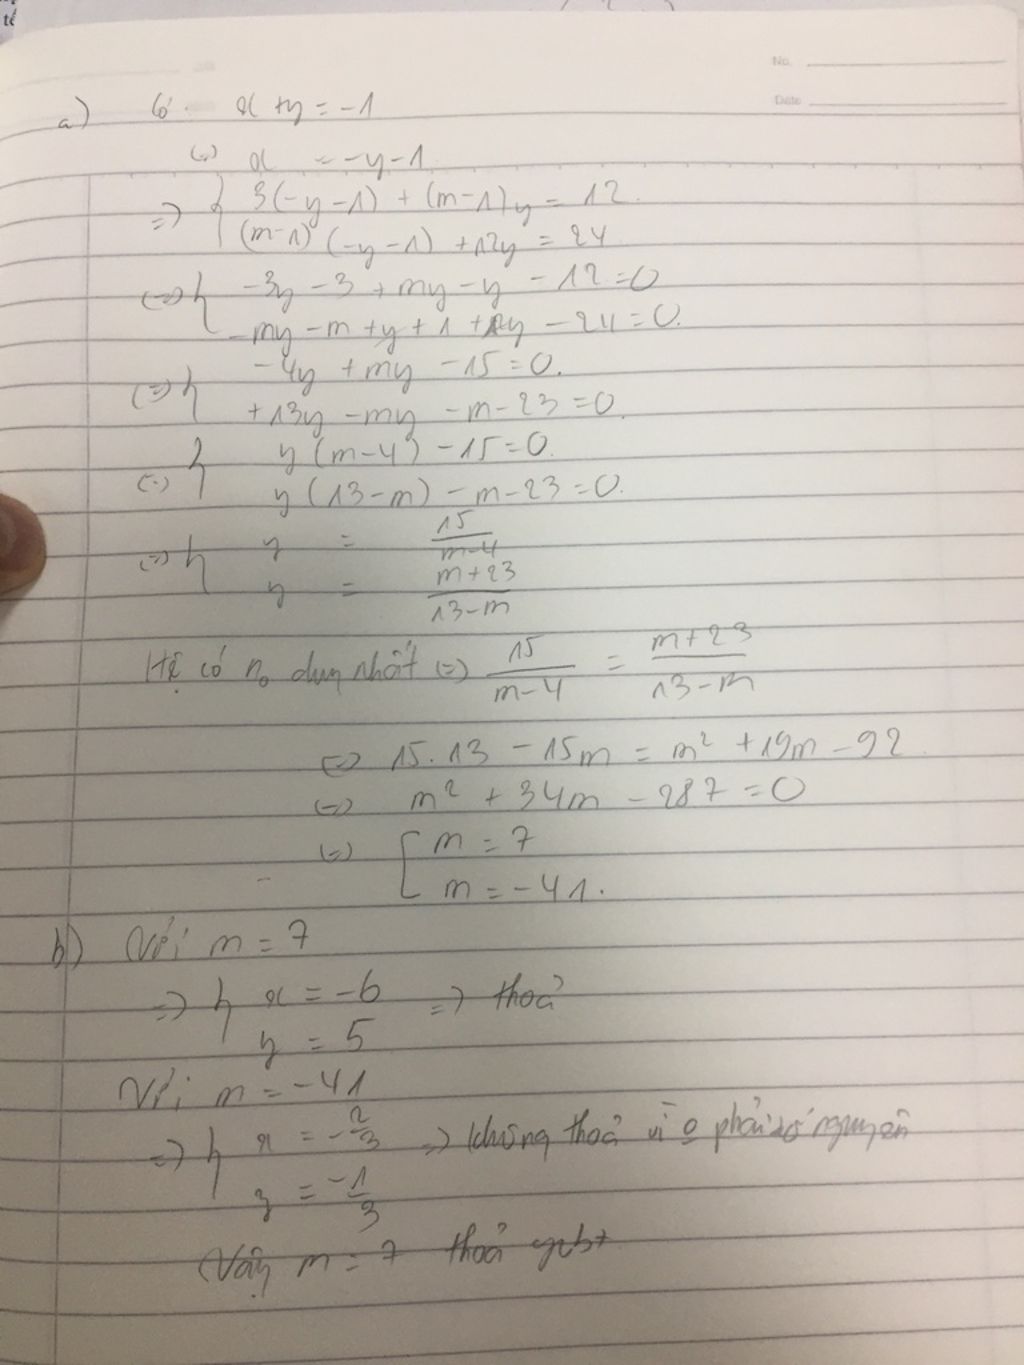 tế
No.
Date
a) Có x + y = -1
(=) x = -y-1
=> { 3(-y-1) + (m-1)y = 12.
(m-1) (-y-1) + 12y = 24
(=) { -3y - 3 + my - y - 12 = 0
-my - m + y + 1 + 12y - 24 = 0.
(=) { -4y + my - 15 = 0.
+13y - my - m - 23 = 0.
(=) { y(m-4) - 15 = 0.
y(13-m) - m - 23 = 0.
(=) { y = 15/(m-4)
y = (m+23)/(13-m)
Hệ có n₀ duy nhất (=) 15/(m-4) = (m+23)/(13-m)
(=) 15.13 - 15m = m² + 19m - 92
(=) m² + 34m - 287 = 0
(=) [ m = 7
m = -41.
b) Với m = 7
=> { x = -6 => thoả
y = 5
Với m = -41
=> { x = -2/3 => không thoả vì o phải số nguyên
y = -1/3
Vậy m = 7 thoả ycbt